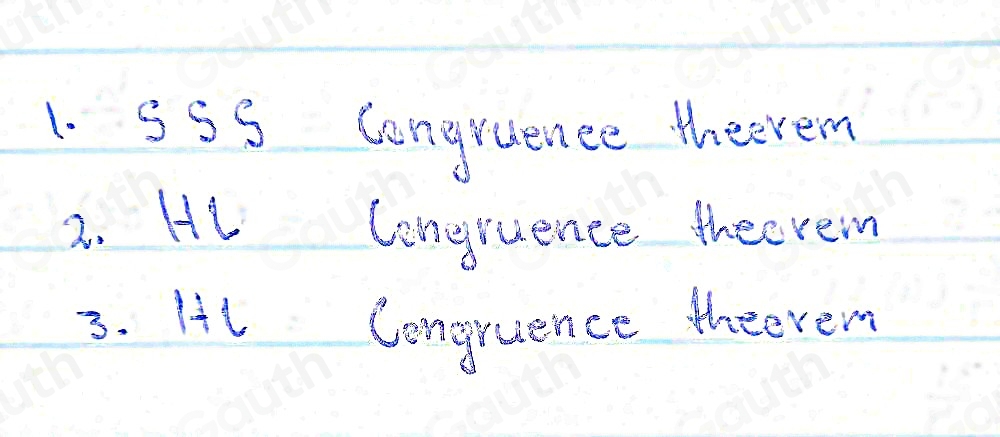 1. SSS Congruence theorem
2. HL Congruence theorem
3. HL Congruence theorem